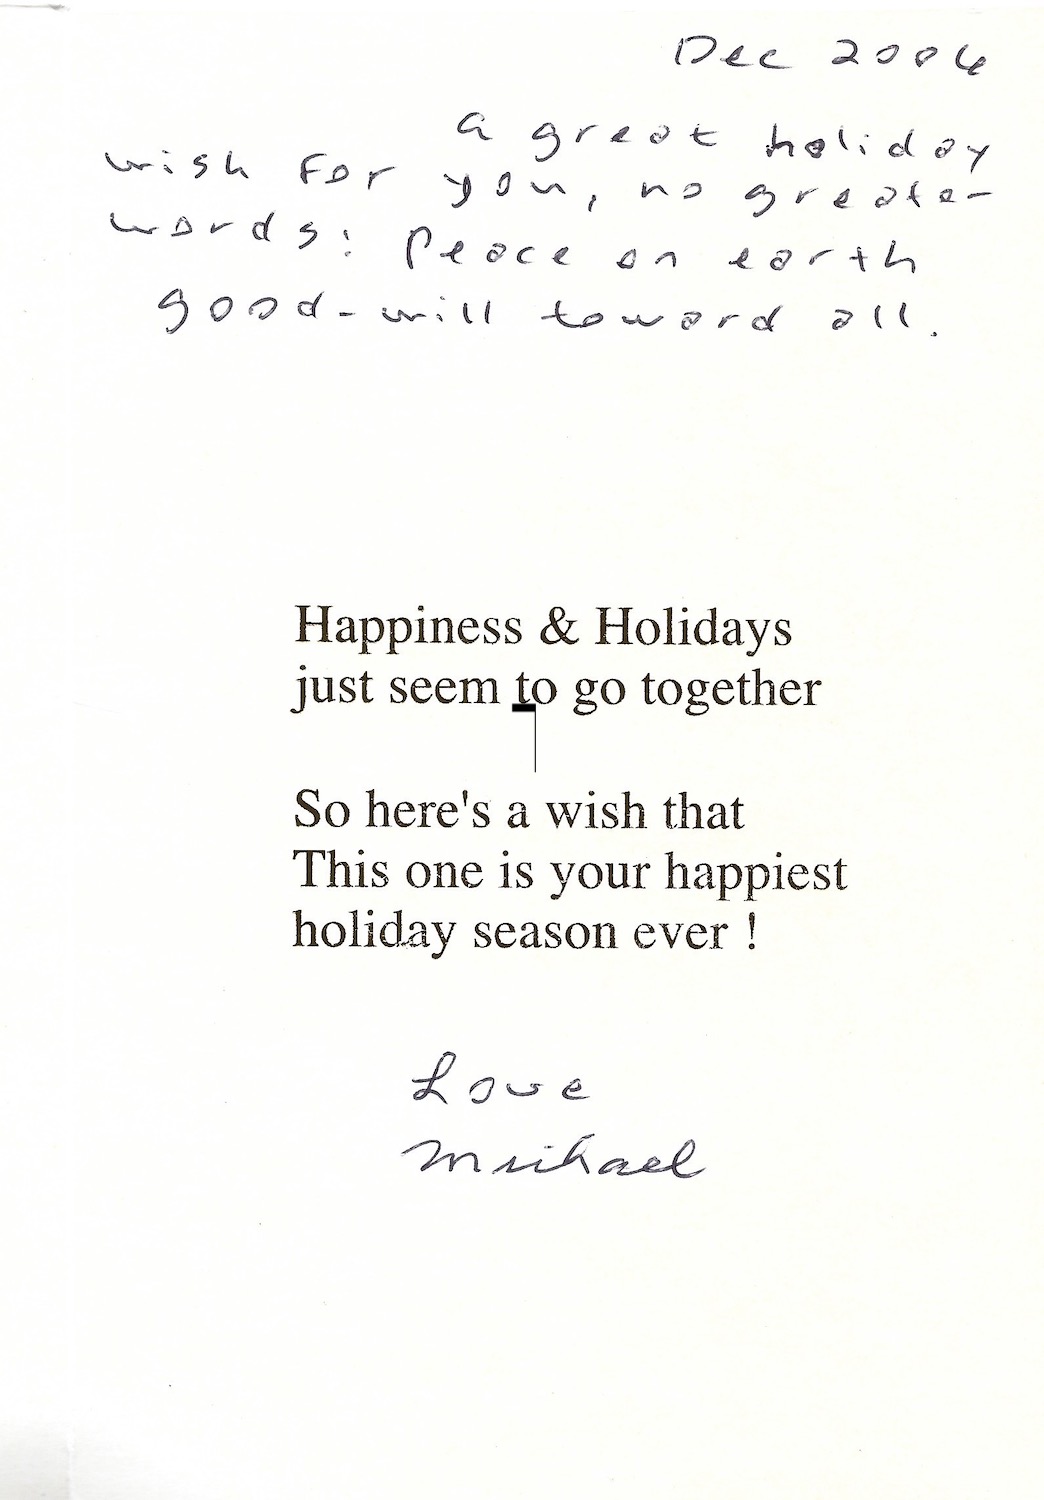 Dec 2006
a great holiday
wish for you, no greater
words: Peace on earth
good-will toward all.
Happiness & Holidays
just seem to go together
So here's a wish that
This one is your happiest
holiday season ever !
Love
Michael